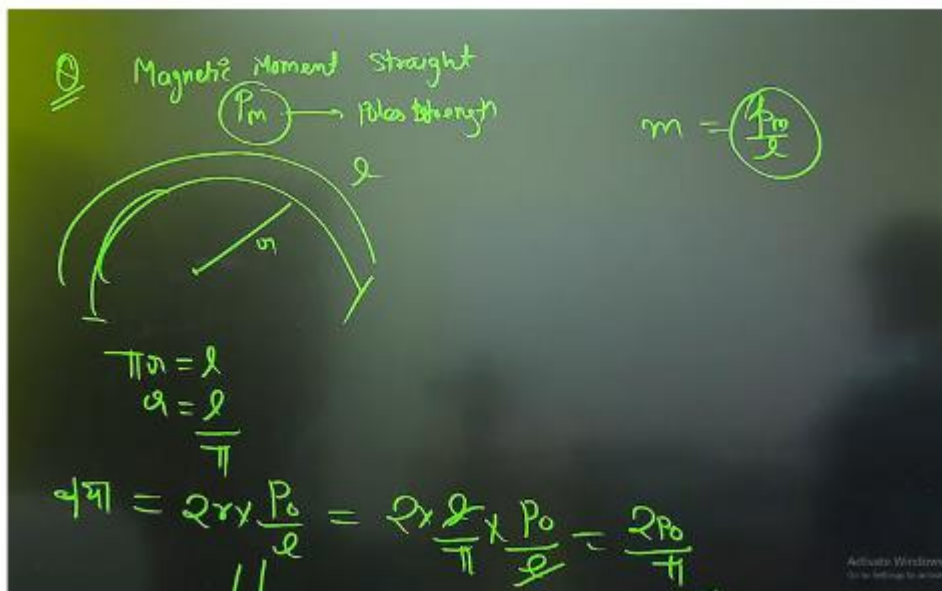 Q Magnetic Moment Straight
Pm → Poles strength
m = pm/l
l
r
πr = l
r = l/π
नया = 2r× P0/l = 2× l/π × P0/l = 2P0/π
Activate Windows
Go to Settings to activate